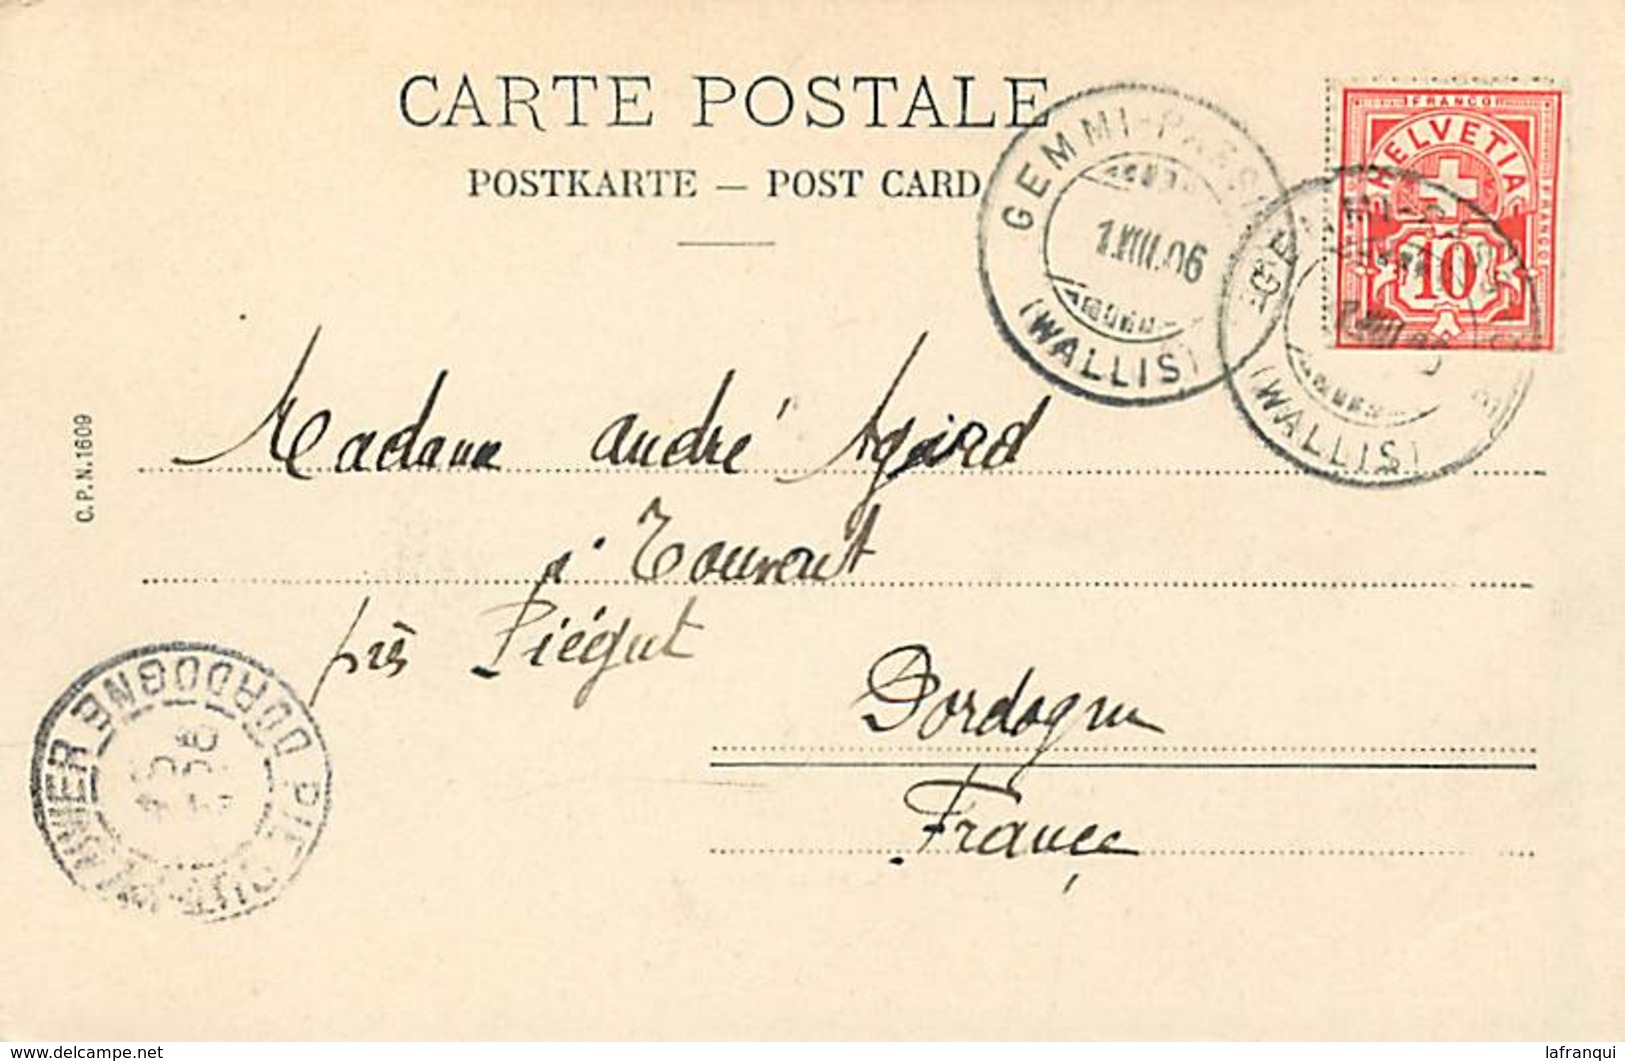 CARTE POSTALE
POSTKARTE — POST CARD
GEMMI-PASS
1.VIII.06
(WALLIS)
FRANCO
HELVETIA
FRANCO
10
(WALLIS)
C.P.N. 1609
Madame André Agard
à
près Piégut
Dordogne
France
DORDOGNE
delcampe.net
lafranqui